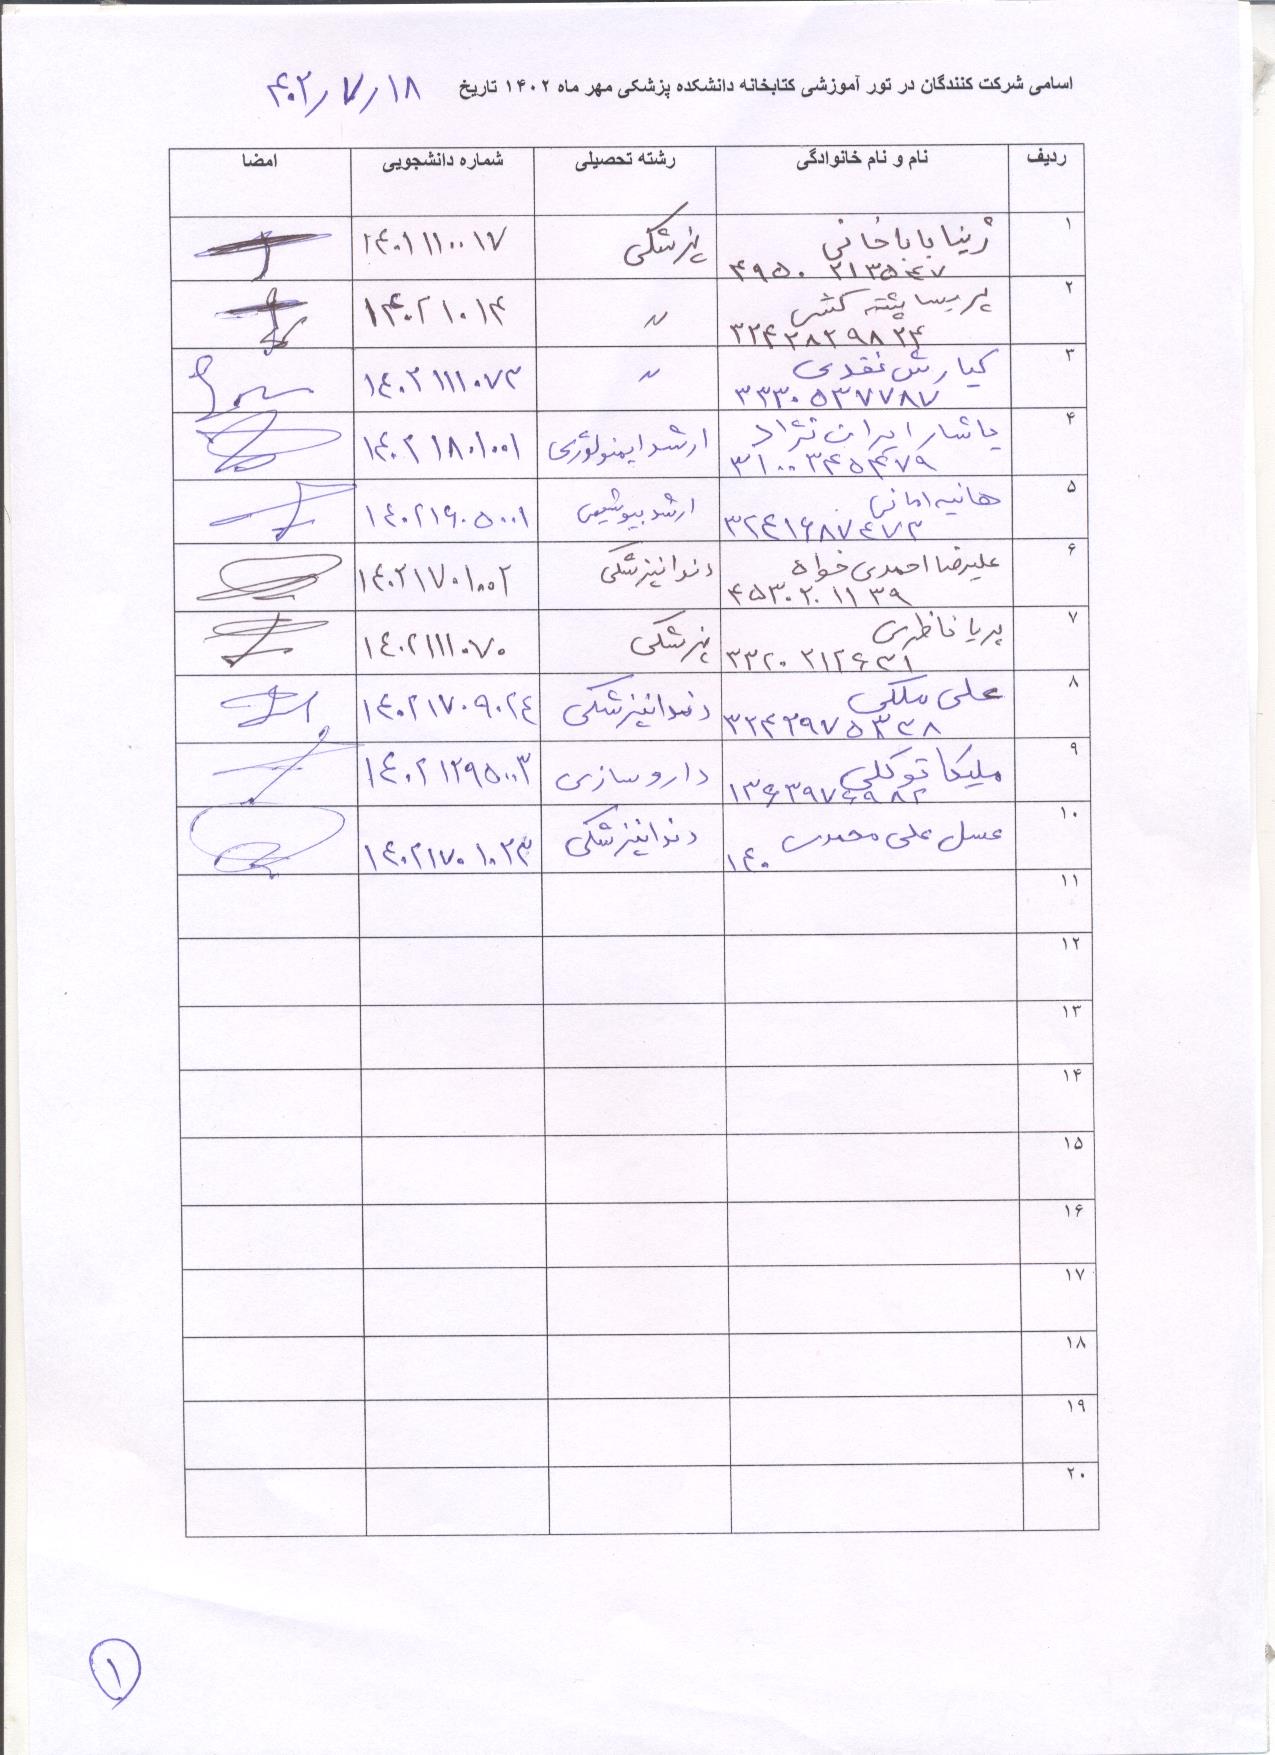 اسامی شرکت کنندگان در تور آموزشی کتابخانه دانشکده پزشکی مهر ماه ۱۴۰۲ تاریخ ۴۰۲/۷/۱۸
ردیف نام و نام خانوادگی رشته تحصیلی شماره دانشجویی امضا
۱ ژینا باباخانی پزشکی ۱۴۰۱۱۱۰۰۱۷
۴۹۵۰۲۱۳۵۴۷
۲ پریسا پشته کشی 〃 ۱۴۰۲۱۰۱۴
۳۲۴۲۸۲۹۸۲۴
۳ کیارش نقدی 〃 ۱۴۰۲۱۱۱۰۷۳
۳۳۳۰۵۳۷۷۸۷
۴ یاشار ایران نژاد ارشد ایمنولوژی ۱۴۰۲۱۸۰۱۰۰۱
۳۱۰۰۳۴۵۴۷۹
۵ هانیه امانی ارشد بیوشیمی ۱۴۰۲۱۶۰۵۰۰۱
۳۲۴۱۶۸۷۴۷۳
۶ علیرضا احمدی خواه دندانپزشکی ۱۴۰۲۱۷۰۱۰۰۲
۴۵۳۰۲۰۱۱۳۹
۷ پریا ناظری پزشکی ۱۴۰۲۱۱۱۰۷۰
۳۳۲۰۲۱۲۶۳۱
۸ علی ملکی دندانپزشکی ۱۴۰۲۱۷۰۹۰۲۴
۳۲۴۲۹۷۵۳۳۸
۹ ملیکا توکلی داروسازی ۱۴۰۲۱۲۹۵۰۰۳
۱۳۶۳۹۷۶۹۸۲
۱۰ عسل علی محمدی دندانپزشکی ۱۴۰۲۱۷۰۱۰۲۳
۱۴۰
۱۱
۱۲
۱۳
۱۴
۱۵
۱۶
۱۷
۱۸
۱۹
۲۰
۱